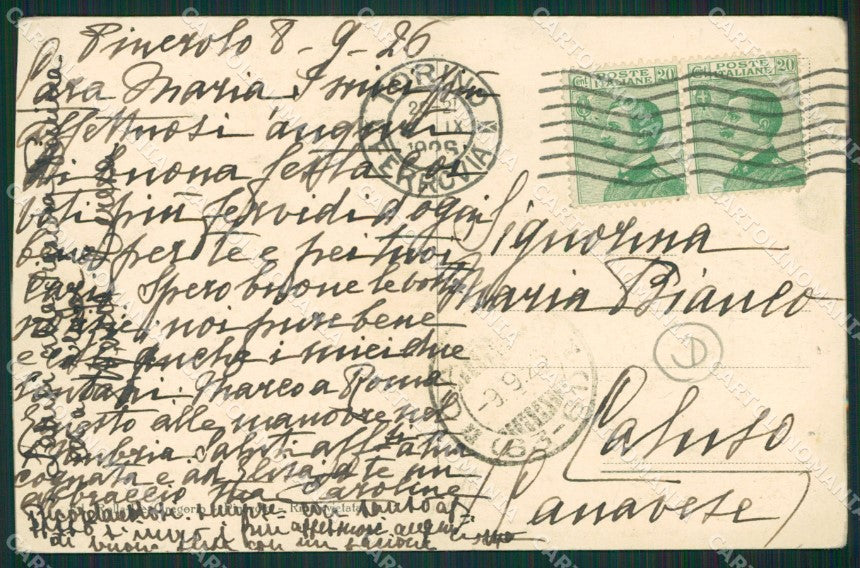 Pinerolo 8-9-26
Cara Maria I miei più
affettuosi auguri
di buona festa coi
voti più fervidi d'ogni
bene per te e pei tuoi
cari. Spero buone le vostre
notizie, noi pure bene
e così anche i miei due
lontani. Marco a Roma
Ernesto alle manovre nel
Umbria. Saluti affett. alla
cognata e ad Elisa, a te un
abbraccio tua Caroline
con tanto af
fetto i più affettuosi auguri
di buona festa con un bacione
TORINO
IX
1926
FERROVIA
POSTE
ITALIANE
Cent. 20
POSTE
ITALIANE
Cent. 20
Signorina
Maria Bianco
Caluso
Canavese
9.9.26
Riprod. vietata
CARTOLINOMANIA